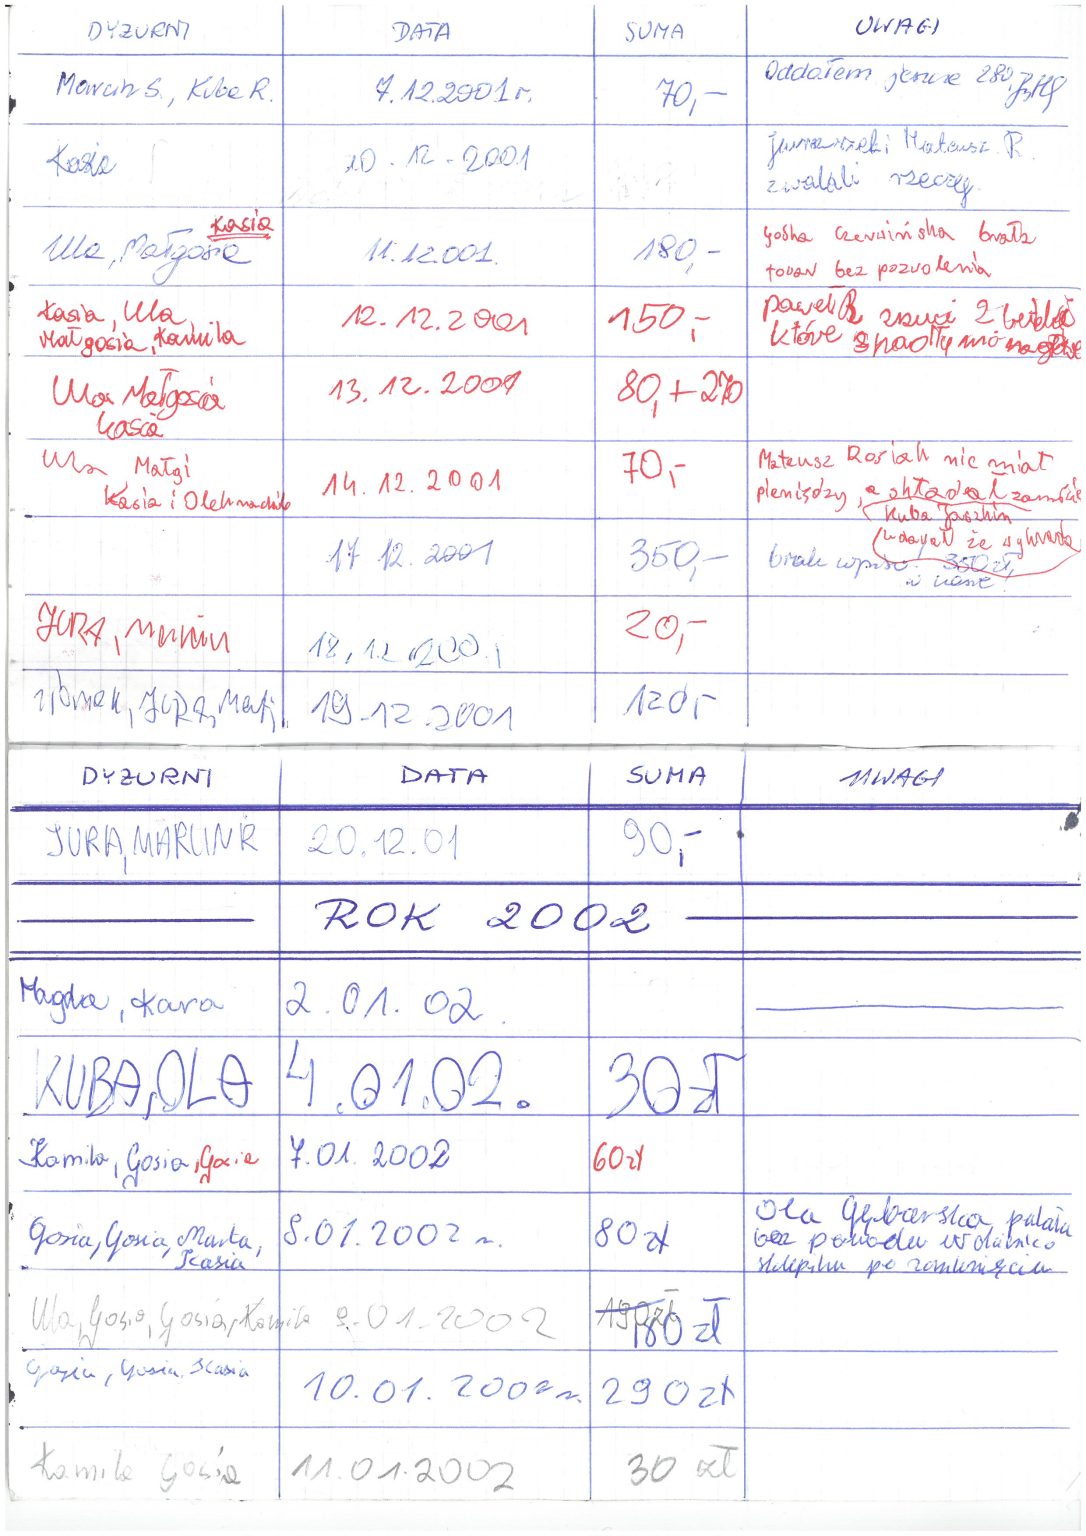 DYŻURNI DATA SUMA UWAGI
Marcin S., Kuba R. 7.12.2001 r. 70,- Oddałem jeszcze 280,
Kasia 10.12-2001 Mateusz R.
zwalali rzeczy.
Kasia
Ula, Małgosia 11.12.001. 180,- Gośka Czerwińska brała
towar bez pozwolenia
Kasia, Ula 12.12.2001 150,- paweł R zrzuci 2
Małgosia, Kamila które spadły
Ula Małgosia 13.12.2001 80,+270
Kasia
Ula Małgi 14.12.2001 70,- Mateusz Rosiak nie miał
Kasia i Olek pieniędzy, a składał
Kuba
udawał że
17 12.2001 350,- brak wpisu 350 zł,
w kasie
JURA, Marcin 18.12.2001 20,-
JURA, 19-12.2001 120,-
DYŻURNI DATA SUMA UWAGI
JURA, MARCIN R 20.12.01 90,-
ROK 2002
Magda, Kara 2.01.02
KUBA, OLA 4.01.02. 30 zł
Kamila, Gosia, Gosia 7.01.2002 60 zł
Gosia, Gosia, Marta, 8.01.2002 r. 80 zł Ola
Kasia bez powodu
sklepiku po zamknięciu
Ula, Gosia, Gosia, Kamila 9.01.2002 190zł 180 zł
Gosia, Gosia, Kasia 10.01.2002 r. 290 zł
Kamila Gosia 11.01.2002 30 zł